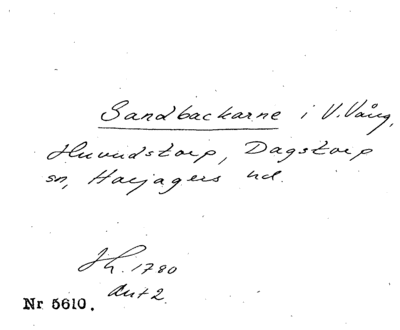 Sandbackarne i V. Vång,
Huvudstorp, Dagstorp
sn, Harjagers hd.
Jh. 1780
Akt 2.
Nr 5610.